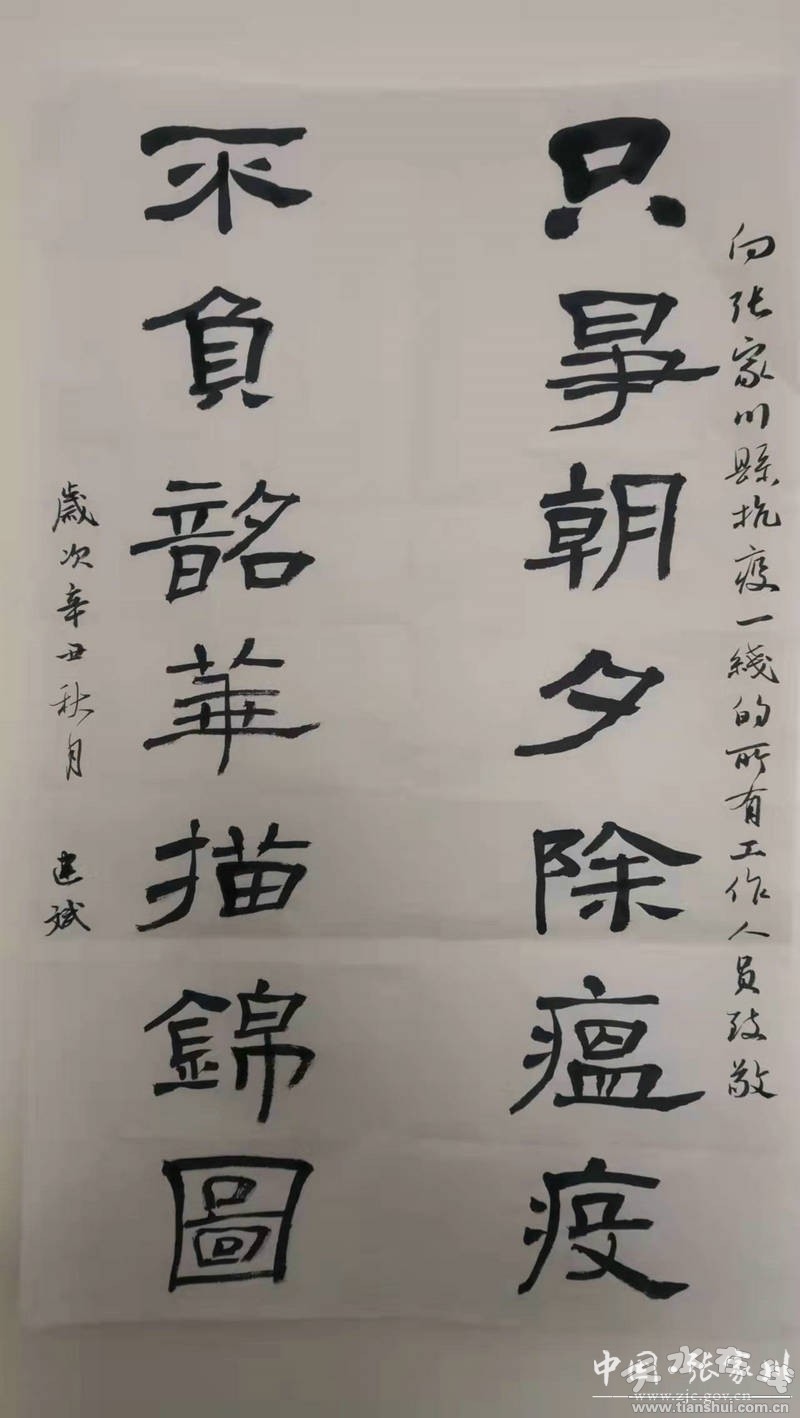 向张家川縣抗疫一綫的所有工作人员致敬
只争朝夕除瘟疫
不負韶華描錦圖
歲次辛丑秋月 建斌
中国·张家川
www.zjc.gov.cn
www.tianshui.com.cn